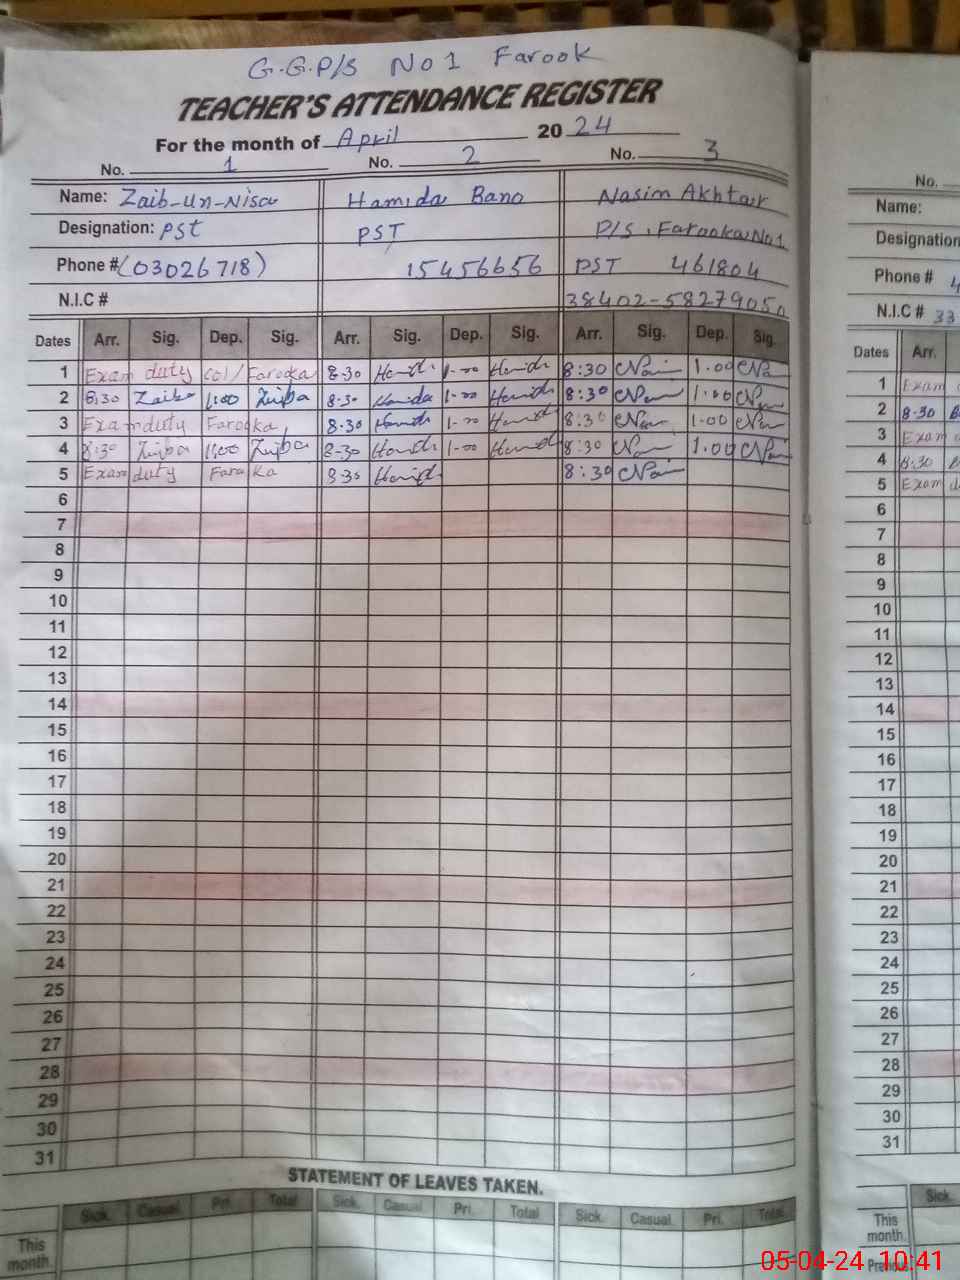 G.G.P/S No 1 Farook
TEACHER'S ATTENDANCE REGISTER
For the month of April 2024
No. 1 No. 2 No. 3
No.
Name: Zaib-un-Nisa Hamida Bano Nasim Akhtar
Name:
Designation: PST PST P/S, Farooka No1
Designation
Phone # (03026718) 15456656 PST 461804
Phone # 4
N.I.C # 38402-5827905
N.I.C # 33
Dates Arr. Sig. Dep. Sig. Arr. Sig. Dep. Sig. Arr. Sig. Dep. Sig.
Dates Arr.
1 Exam duty Col/Farooka 8:30 Hamida 1-00 Hamida 8:30 1.00
1 Exam
2 8:30 Zaiba 1:00 Zaiba 8:30 Hamida 1-00 Hamida 8:30 1.00
2 8:30
3 Exam duty Farooka, 8:30 Hamida 1-00 Hamida 8:30 1.00
3 Exam
4 8:30 Zaiba 1:00 Zaiba 8:30 Hamida 1-00 Hamida 8:30 1.00
4 8:30
5 Exam duty Farooka 8:30 Hamida 8:30
5 Exam d
6
6
7
7
8
8
9
9
10
10
11
11
12
12
13
13
14
14
15
15
16
16
17
17
18
18
19
19
20
20
21
21
22
22
23
23
24
24
25
25
26
26
27
27
28
28
29
29
30
30
31
31
STATEMENT OF LEAVES TAKEN.
Sick. Casual. Pri. Total Sick. Casual Pri. Total Sick. Casual. Pri. Total
Sick.
This month.
This month.
Previous
05-04-24 10:41